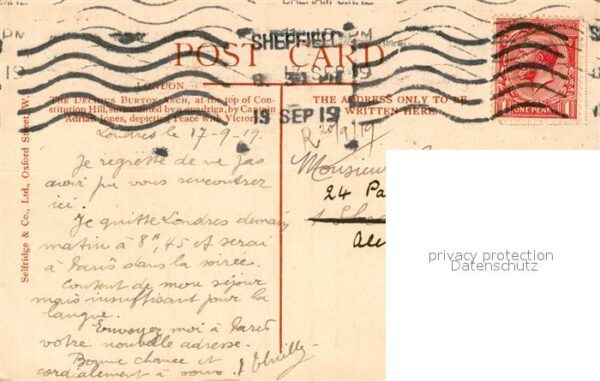 SHEFFIELD
19 SEP 19
POST CARD
ONE PENNY
LONDON
THE DECIMUS BURTON ARCH, at the top of Con-
stitution Hill, surmounted by a quadriga, by Captain
Adrian Jones, depicting Peace with Victory
THE ADDRESS ONLY TO BE
WRITTEN HERE.
Selfridge & Co., Ltd., Oxford Street, W.
Londres le 17-9-19
Je regrette de ne pas
avoir pu vous rencontrer
ici.
Je quitte Londres demain
matin à 8h,45 et serai
à Paris dans la soirée.
Content de mon séjour
mais insuffisant pour la
langue.
Envoyez moi à Paris
votre nouvelle adresse.
Bonne chance et
cordialement à vous.
R 20/9/19
Monsieur
24 Pa
privacy protection
Datenschutz